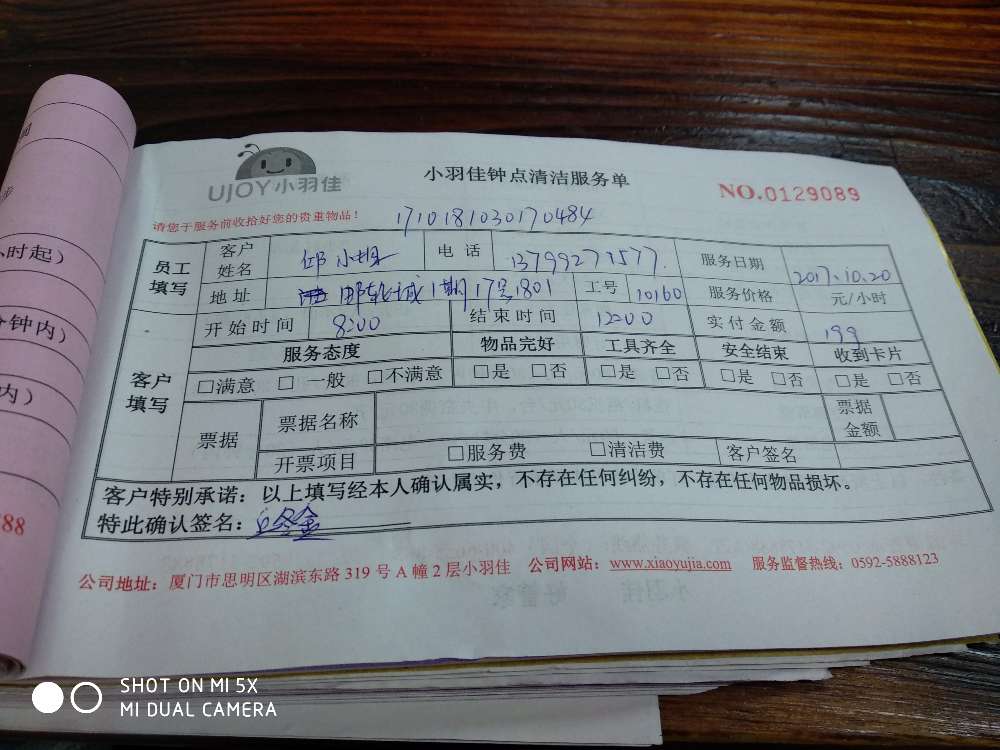 UJOY小羽佳
小羽佳钟点清洁服务单
NO.0129089
请您于服务前收拾好您的贵重物品！
1710181030170484
员工填写 客户姓名 邱小 电话 13799271577 服务日期 2017.10.20
地址 邮轮城1期17号1801 工号 10160 服务价格 元/小时
开始时间 8:00 结束时间 12:00 实付金额 199
客户填写 服务态度 物品完好 工具齐全 安全结束 收到卡片
□满意 □一般 □不满意 □是 □否 □是 □否 □是 □否 □是 □否
票据 票据名称 票据金额
开票项目 □服务费 □清洁费 客户签名
客户特别承诺：以上填写经本人确认属实，不存在任何纠纷，不存在任何物品损坏。
特此确认签名：
公司地址：厦门市思明区湖滨东路319号A幢2层小羽佳 公司网站：www.xiaoyujia.com 服务监督热线：0592-5888123
小时起）
分钟内）
内）
88
SHOT ON MI 5X
MI DUAL CAMERA